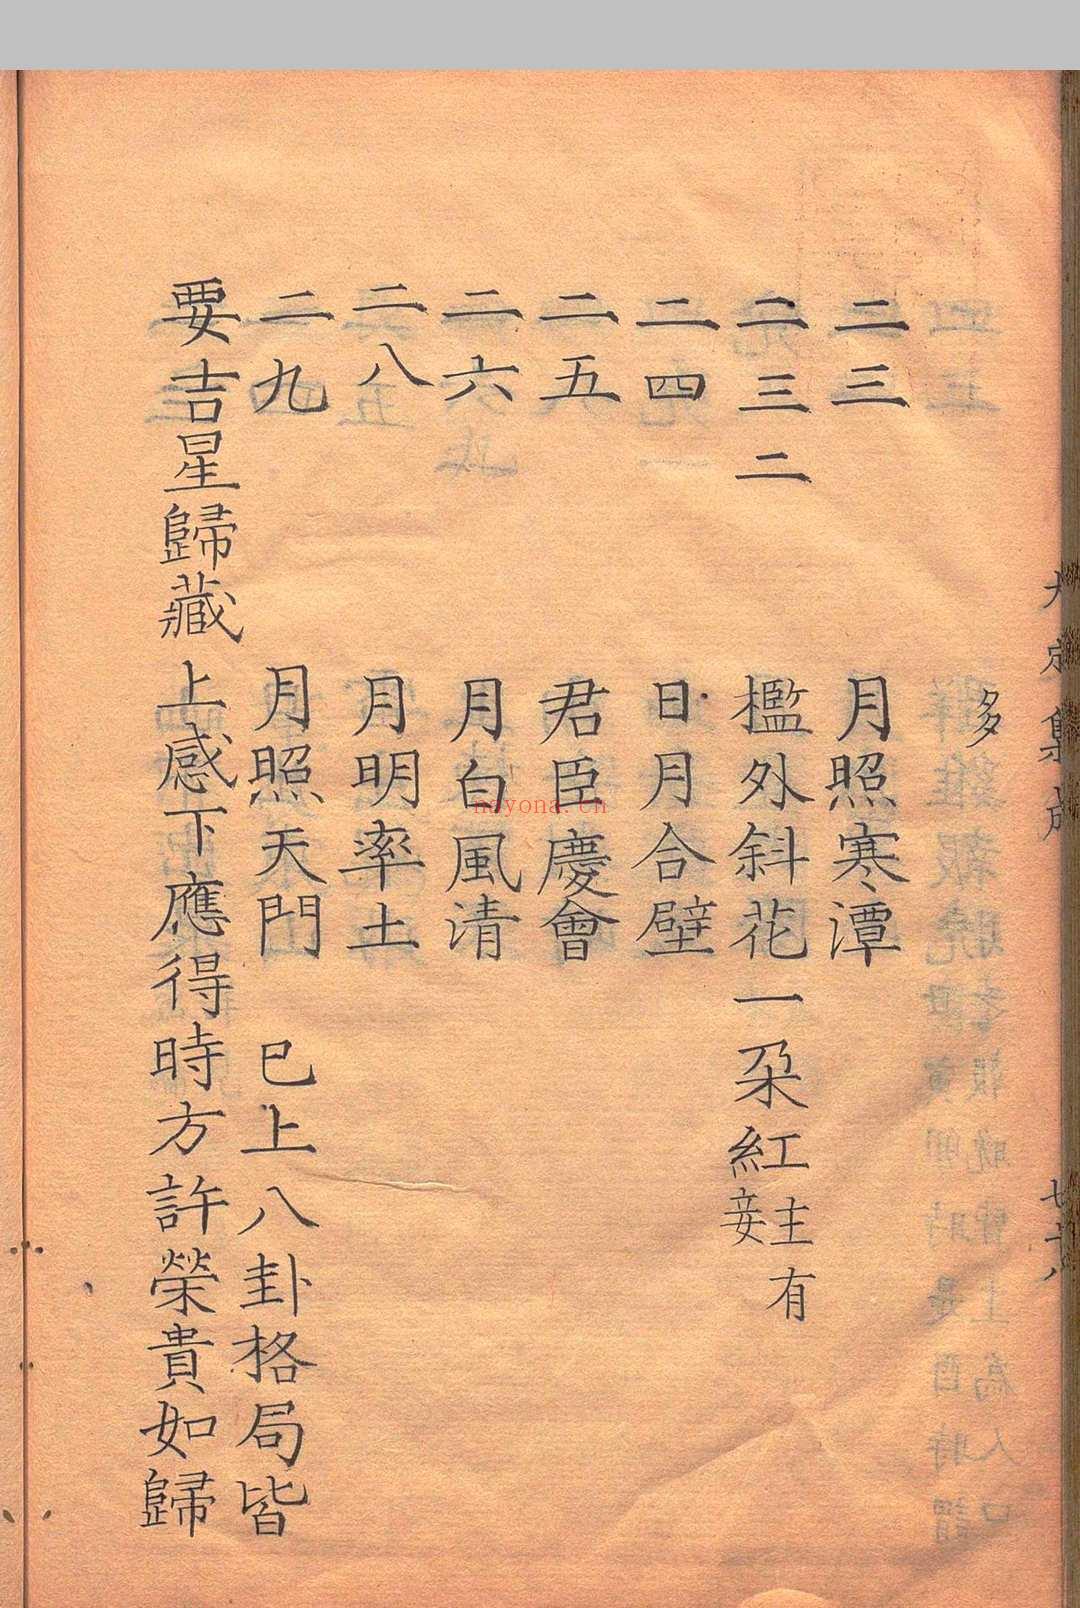 多
二三 月照寒潭
二三二 檻外斜花一朶紅 主有妾
二四 日月合壁
二五 君臣慶會
二六 月白風清
二八 月明率土
二九 月照天門 已上八卦格局皆
要吉星歸藏上感下應得時方許榮貴如歸
nayona.cn